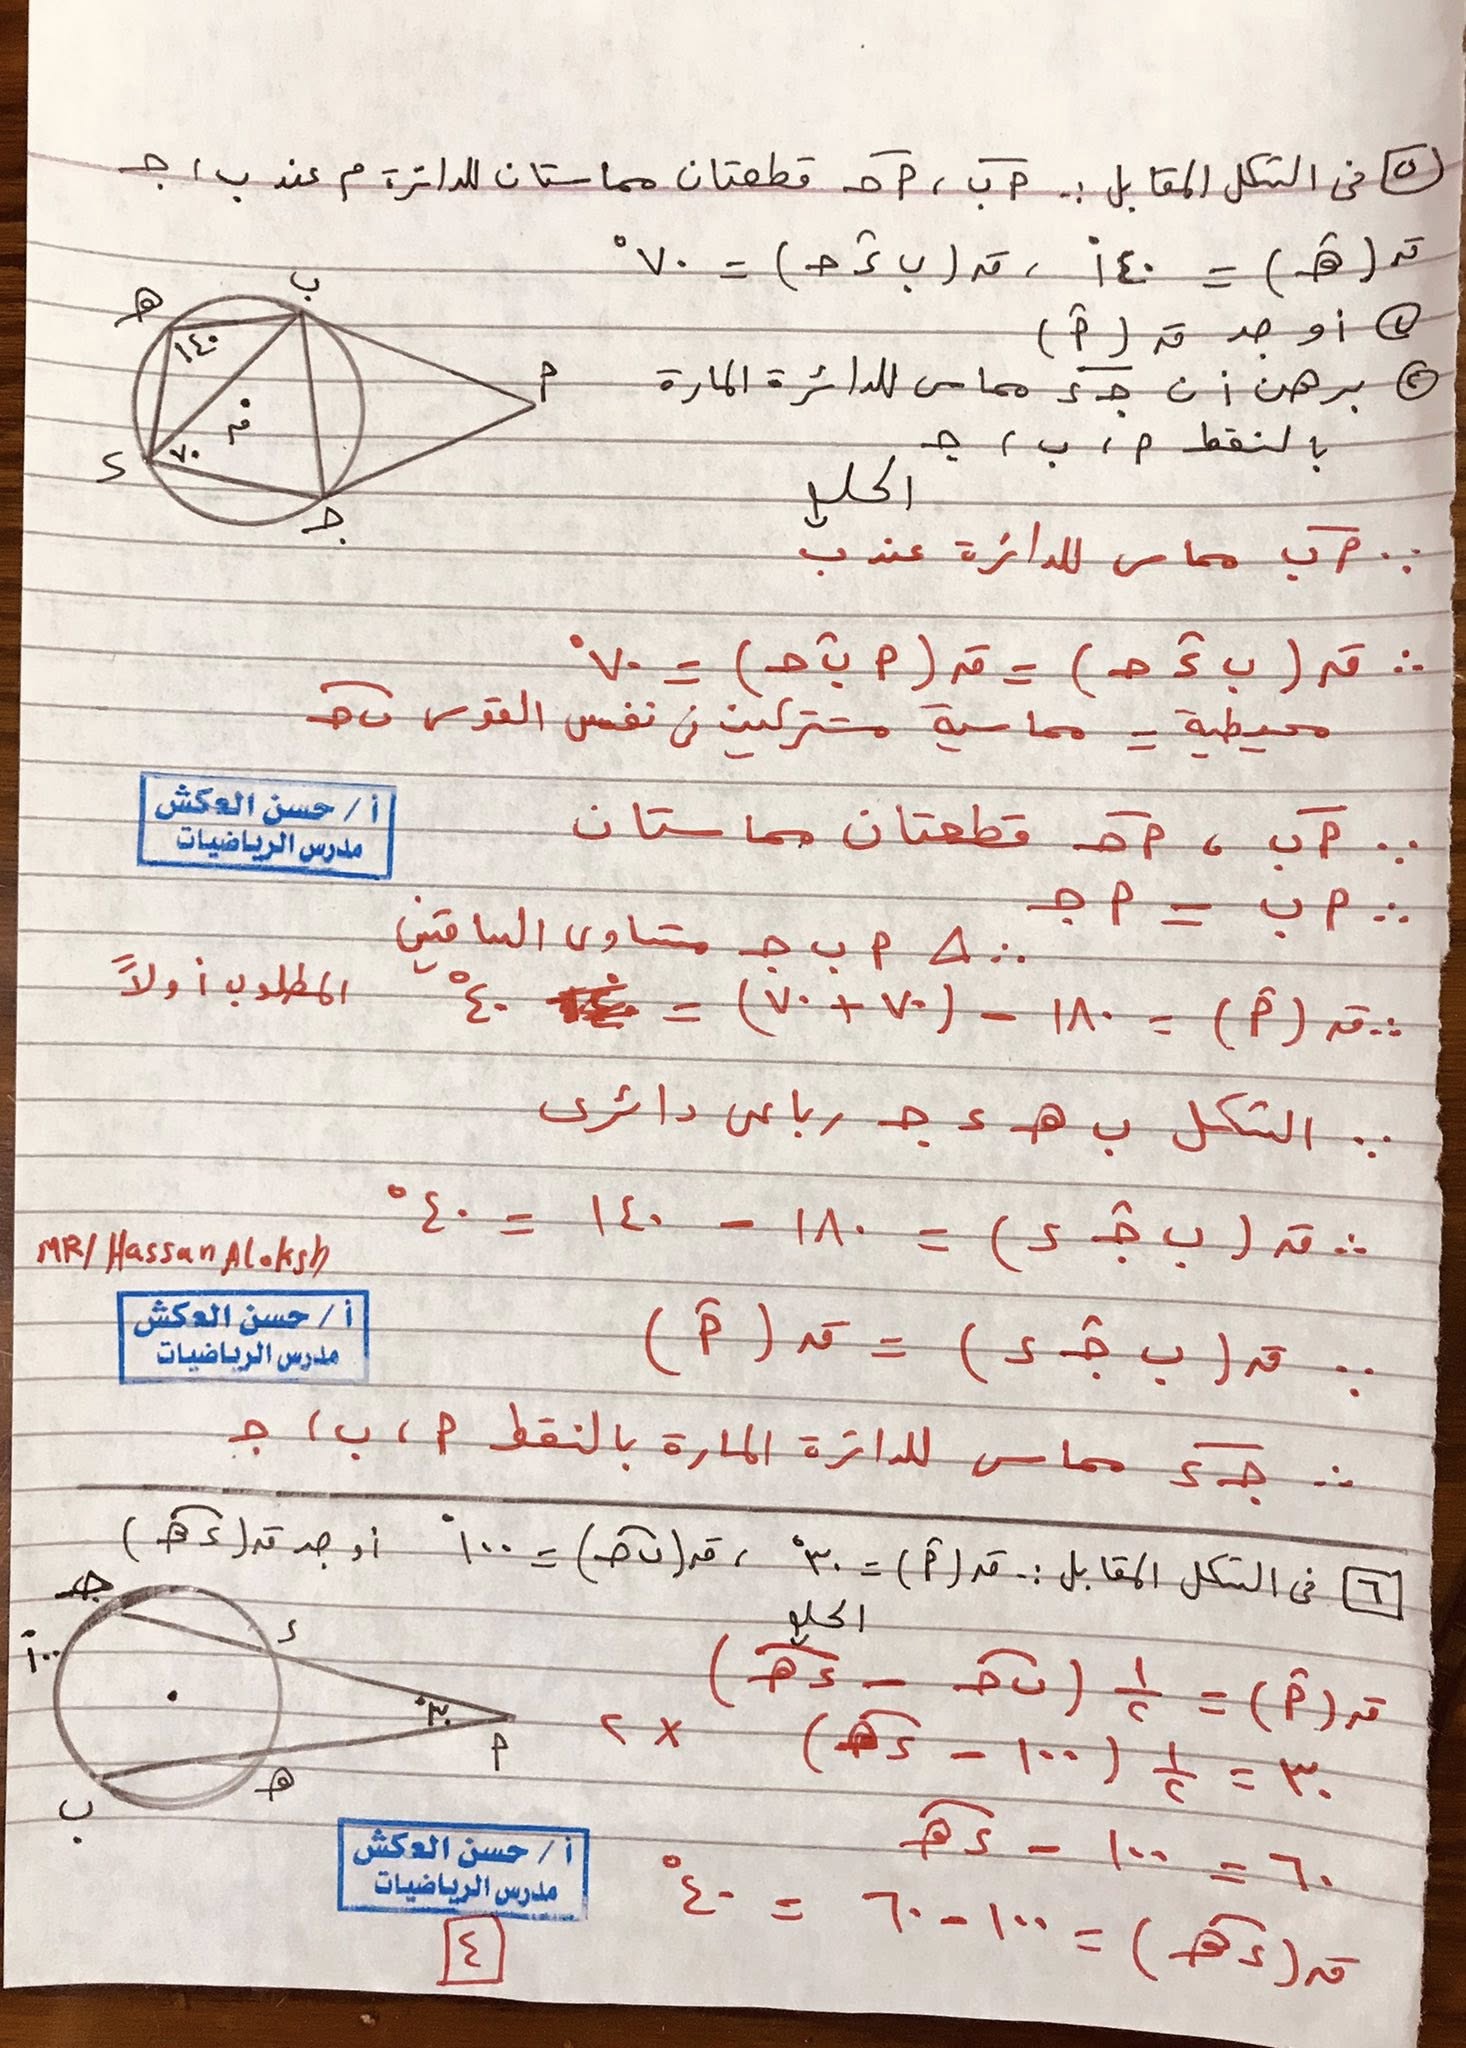 ٥ فى الشكل المقابل :- ٢ب ، ٢ج قطعتان مماستان للدائرة م عند ب ، ج
ق (هـ) = ١٤٠° ، ق (ب ء ج) = ٧٠°
١ أوجد ق (٢)
٢ برهن أن ج ء مماس للدائرة المارة
بالنقط ٢ ، ب ، ج
الحل
ب
هـ
١٤٠
٢
م
٧٠
ء
ج
∵ ٢ب مماس للدائرة عند ب
∴ ق (ب ء ج) = ق (٢ ب ج) = ٧٠°
محيطية = مماسية مشتركين فى نفس القوس ب ج
أ / حسن العكش
مدرس الرياضيات
∵ ٢ب ، ٢ج قطعتان مماستان
∴ ٢ ب = ٢ ج
∴ △ ٢ ب ج متساوى الساقين
∴ ق (٢) = ١٨٠ - (٧٠ + ٧٠) = ٤٠° المطلوب أولاً
∵ الشكل ب هـ ء ج رباعى دائرى
∴ ق (ب ج ء) = ١٨٠ - ١٤٠ = ٤٠°
MR/ Hassan Aloksh
أ / حسن العكش
مدرس الرياضيات
∵ ق (ب ج ء) = ق (٢)
∴ ج ء مماس للدائرة المارة بالنقط ٢ ، ب ، ج
٦ فى الشكل المقابل :- ق (٢) = ٣٠° ، ق (ب ج) = ١٠٠° أوجد ق (ء هـ)
الحل
ج
١٠٠°
ء
٣٠°
٢
هـ
ب
ق (٢) = ١/٢ (ب ج - ء هـ)
٣٠ = ١/٢ (١٠٠ - ء هـ) × ٢
٦٠ = ١٠٠ - ء هـ
ق (ء هـ) = ١٠٠ - ٦٠ = ٤٠°
أ / حسن العكش
مدرس الرياضيات
٤